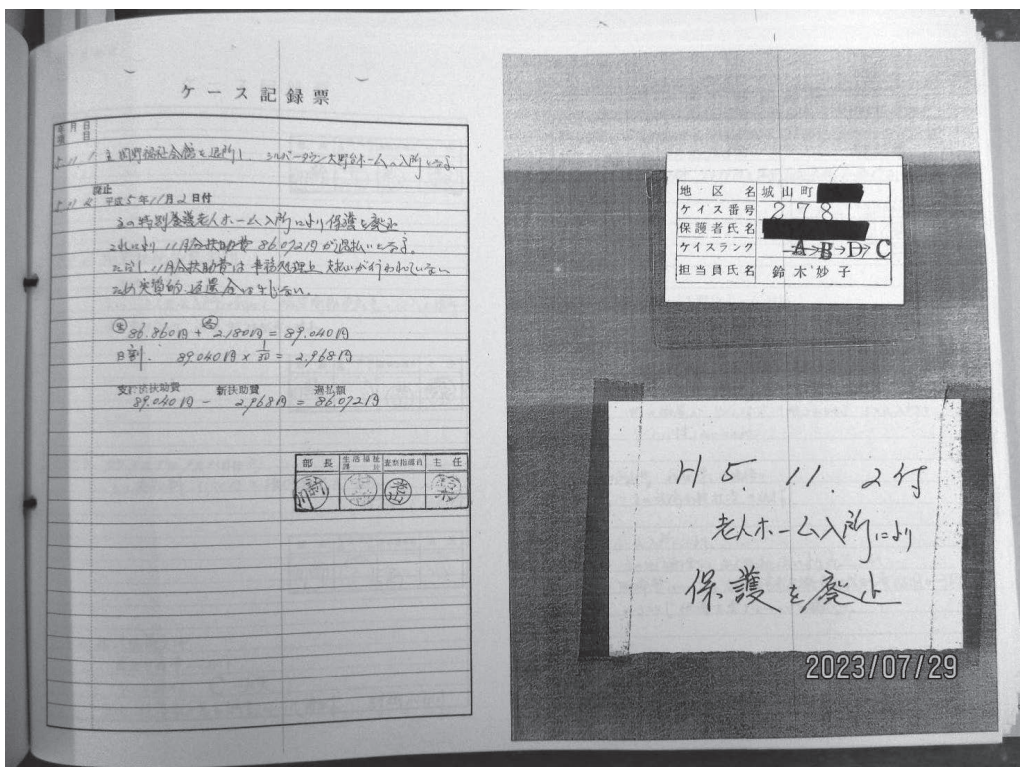 ケース記録票
年月日
項目
5.11.1 主 岡野福祉会館を退所し、シルバータウン大野台ホームへ入所となる
廃止
5.11.2 平成5年11月2日付
主の特別養護老人ホーム入所により保護を廃止
これにより、11月分扶助費 86,072円が過払いとなる。
ただし、11月分扶助費は事務処理上 支払いが行われていない
ため実質的返還金は生じない。
生 86.860円 + 2.180円 = 89.040円
日割. 89.040円 × 1/30 = 2.968円
支給済扶助費 新扶助費 過払額
89.040円 - 2.968円 = 86.072円
部長 生活福祉課長 査察指導員 主任
地区名 城山町
ケイス番号 2781
保護者氏名
ケイスランク A→B→D→C
担当員氏名 鈴木妙子
H5.11.2付
老人ホーム入所により
保護を廃止
2023/07/29